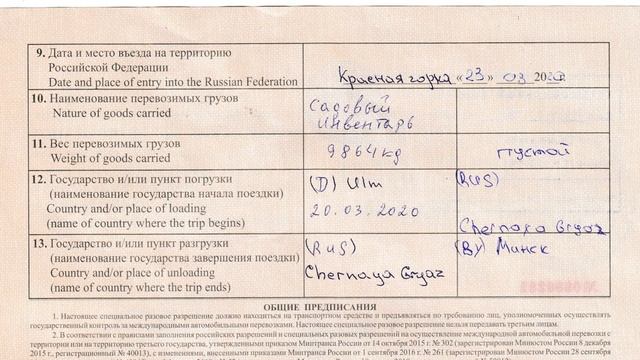 9. Дата и место въезда на территорию
Российской Федерации
Date and place of entry into the Russian Federation
Красная горка «23» 03 2020
10. Наименование перевозимых грузов
Nature of goods carried
Садовый
инвентарь
11. Вес перевозимых грузов
Weight of goods carried
9864 kg
пустой
12. Государство и/или пункт погрузки
(наименование государства начала поездки)
Country and/or place of loading
(name of country where the trip begins)
(D) Ulm
20.03.2020
(RUS)
Chernaya Gryaz
13. Государство и/или пункт разгрузки
(наименование государства завершения поездки)
Country and/or place of unloading
(name of country where the trip ends)
(RUS)
Chernaya Gryaz
(BY) Минск
ОБЩИЕ ПРЕДПИСАНИЯ
1. Настоящее специальное разовое разрешение должно находиться на транспортном средстве и предъявляться по требованию лиц, уполномоченных осуществлять
государственный контроль за международными автомобильными перевозками. Настоящее специальное разовое разрешение нельзя передавать третьим лицам.
2. В соответствии с правилами заполнения российских разрешений и специальных разовых разрешений на осуществление международной автомобильной перевозки с
территории или на территорию третьего государства, утвержденными приказом Минтранса России от 14 октября 2015 г. № 302 (зарегистрирован Минюстом России 8 декабря
2015 г., регистрационный № 40013), с изменениями, внесенными приказами Минтранса России от 1 сентября 2016 г. № 261 (зарегистрирован Минюстом России 28 сентября